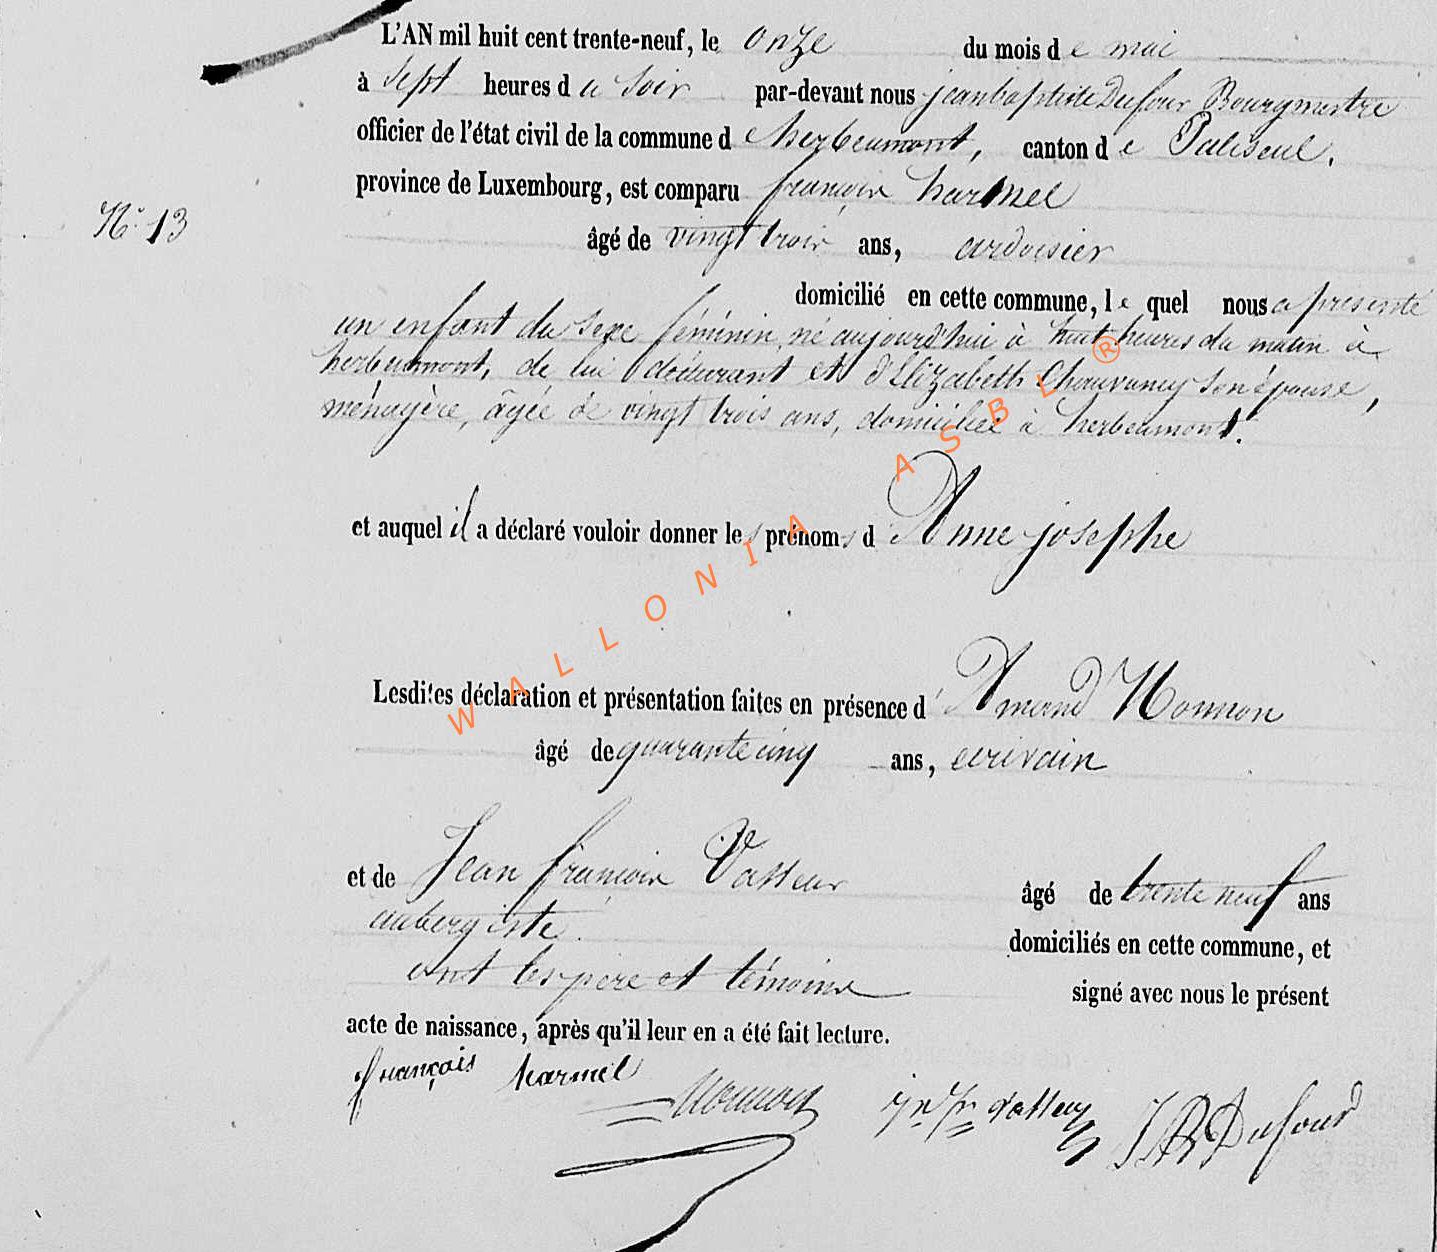 L'AN mil huit cent trente-neuf, le onze du mois de mai
à sept heures du soir par-devant nous jean baptiste Dufour Bourgmestre
officier de l'état civil de la commune d'herbeumont, canton de Paliseul,
province de Luxembourg, est comparu françois harmel
N° 13
âgé de vingt trois ans, ardoisier
domicilié en cette commune, le quel nous a présenté
un enfant du sexe féminin, né aujourd'hui à huit heures du matin à
herbeumont, de lui déclarant et d'Elizabeth Chauvancy son épouse,
ménagère, âgée de vingt trois ans, domiciliée à herbeumont.
et auquel il a déclaré vouloir donner les prénoms d'Anne josephe
Lesdites déclaration et présentation faites en présence d'Amand Nonnon
âgé de quarante cinq ans, ecrivain
et de Jean françois Vasseur âgé de trente neuf ans
aubergiste. domiciliés en cette commune, et
ont les père et témoins signé avec nous le présent
acte de naissance, après qu'il leur en a été fait lecture.
françois harmel Nonnon jn fr Vasseur JB Dufour
WALLONIA ASBL ®